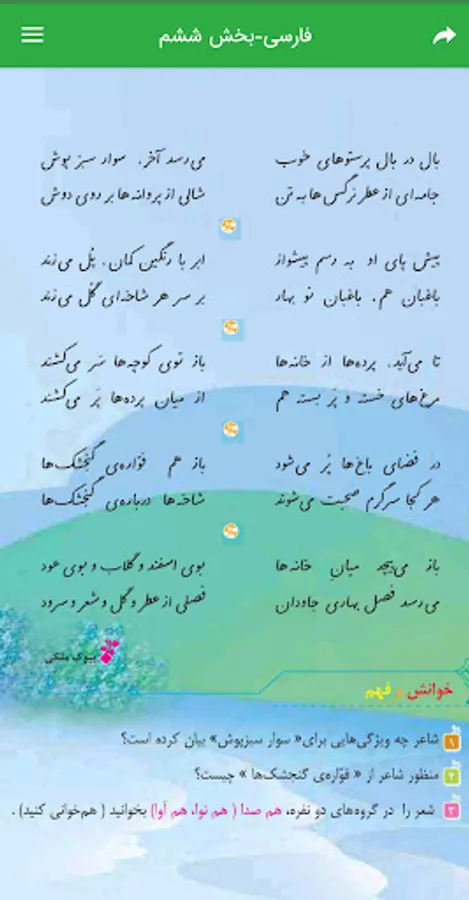 فارسی-بخش ششم
بال در بال پرستوهای خوب می‌رسد آخر، سوار سبز پوش
جامه‌ای از عطر نرگس‌ها به تن شالی از پروانه‌ها بر روی دوش
پیش پای او به رسم پیشواز ابر با رنگین کمان، پُل می‌زند
باغبان هم، باغبان نو بهار بر سر هر شاخه‌ای گُل می‌زند
تا می‌آید، پرده‌ها از خانه‌ها باز توی کوچه‌ها سَر می‌کشند
مرغ‌های خسته و پَر بسته هم از میان پرده‌ها پَر می‌کشند
در فضای باغ‌ها پُر می‌شود باز هم فوّاره‌ی گنجشک‌ها
هر کجا سرگرم صحبت می‌شوند شاخه‌ها درباره‌ی گنجشک‌ها
باز می‌پیچد میان خانه‌ها بوی اسفند و گلاب و بوی عود
می‌رسد فصل بهاری جاودان فصلی از عطر و گل و شعر و سرود
بیوک ملکی
خوانش و فهم
۱ شاعر چه ویژگی‌هایی برای« سوار سبزپوش» بیان کرده است؟
۲ منظور شاعر از « فوّاره‌ی گنجشک‌ها » چیست؟
۳ شعر را در گروه‌های دو نفره، هم صدا ( هم نوا، هم آوا) بخوانید ( هم‌خوانی کنید) .